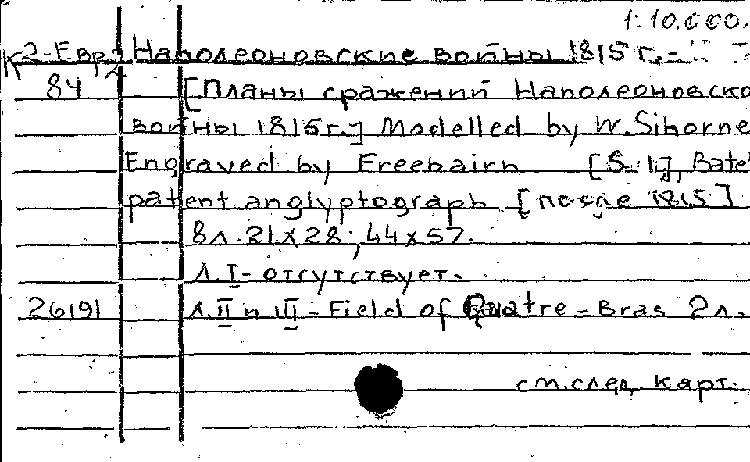 1:10.000.
К 2-Евр Наполеоновские войны 1815 г.-
84 [Планы сражений Наполеоновско
войны 1815г.] Modelled by W. Siborne
Engraved by Freebairn [S.l.], Bate'
patent anglyptograph [после 1815]
8л. 21х28; 44х57.
л. I - отсутствует.
26191 л. II и III - Field of Quatre-Bras 2л.
см. след. карт.